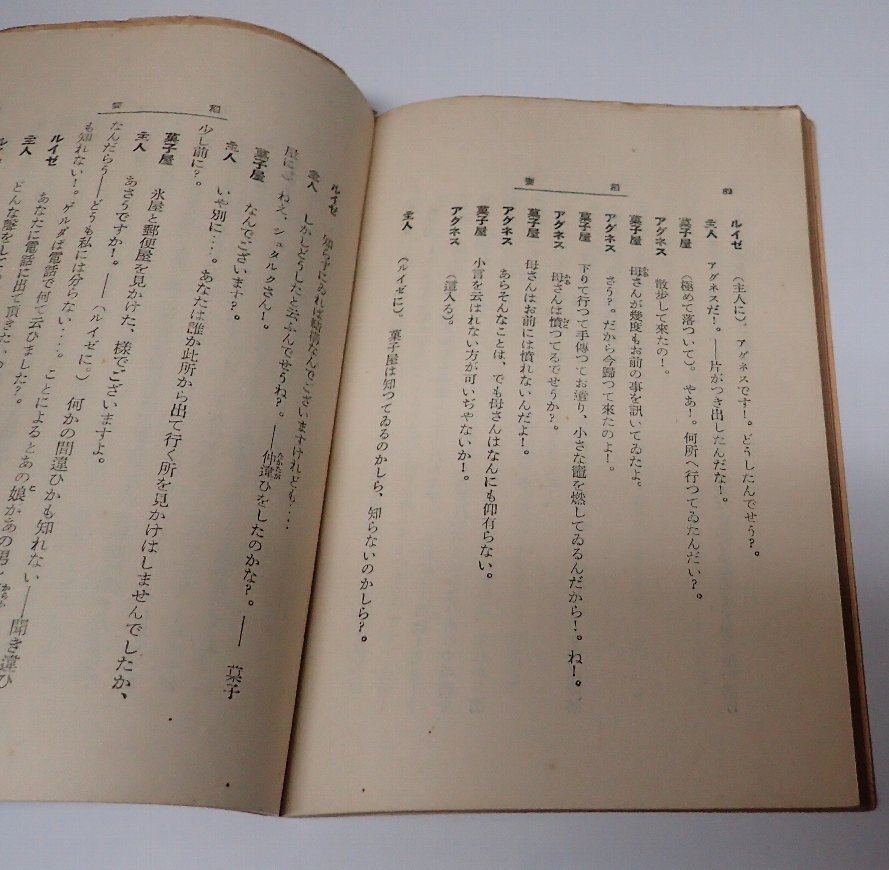 ルイゼ (主人に)。アグネスです!。どうしたんでせう?。
主人 アグネスだ!。――片がつき出したんだな!。
菓子屋 (極めて落ついて)。やあ!。何所へ行つてゐたんだい?。
アグネス 散歩して來たの!。
菓子屋 母さんが幾度もお前の事を訊いてゐたよ。
アグネス さう?。だから今歸つて來たのよ!。
菓子屋 下りて行つて手傳つてお遣り、小さな竈を燃してゐるんだから!。ね!。
アグネス 母さんは憤つてるでせうか?。
菓子屋 母さんはお前には憤れないんだよ!。
アグネス あらそんなことは、でも母さんはなんにも仰有らない。
菓子屋 小言を云はれない方が可いぢやないか!。
アグネス (這入る)。
主人 (ルイゼに)。菓子屋は知つてゐるのかしら、知らないのかしら?。
ルイゼ 知らずにゐれば結構なんでございますけれども‥‥
主人 しかしどうしたと云ふんでせうね?。――仲違ひをしたのかな?。――菓子
屋に。ねえ、シュタルクさん!。
菓子屋 なんでございます?。
主人 いや別に‥‥。あなたは誰か此所から出て行く所を見かけはしませんでしたか、
少し前に?。
菓子屋 氷屋と郵便屋を見かけた、樣でございますよ。
主人 あさうですか!。――(ルイゼに。)何かの間違ひかも知れない――聞き違ひ
なんだらう――どうも私には分らない‥‥。ことによるとあの娘があの男
も知れない!。ゲルダは電話で何て云ひました?。
ルイゼ あなたに電話に出て頂きたい
主人 どんな聲をして